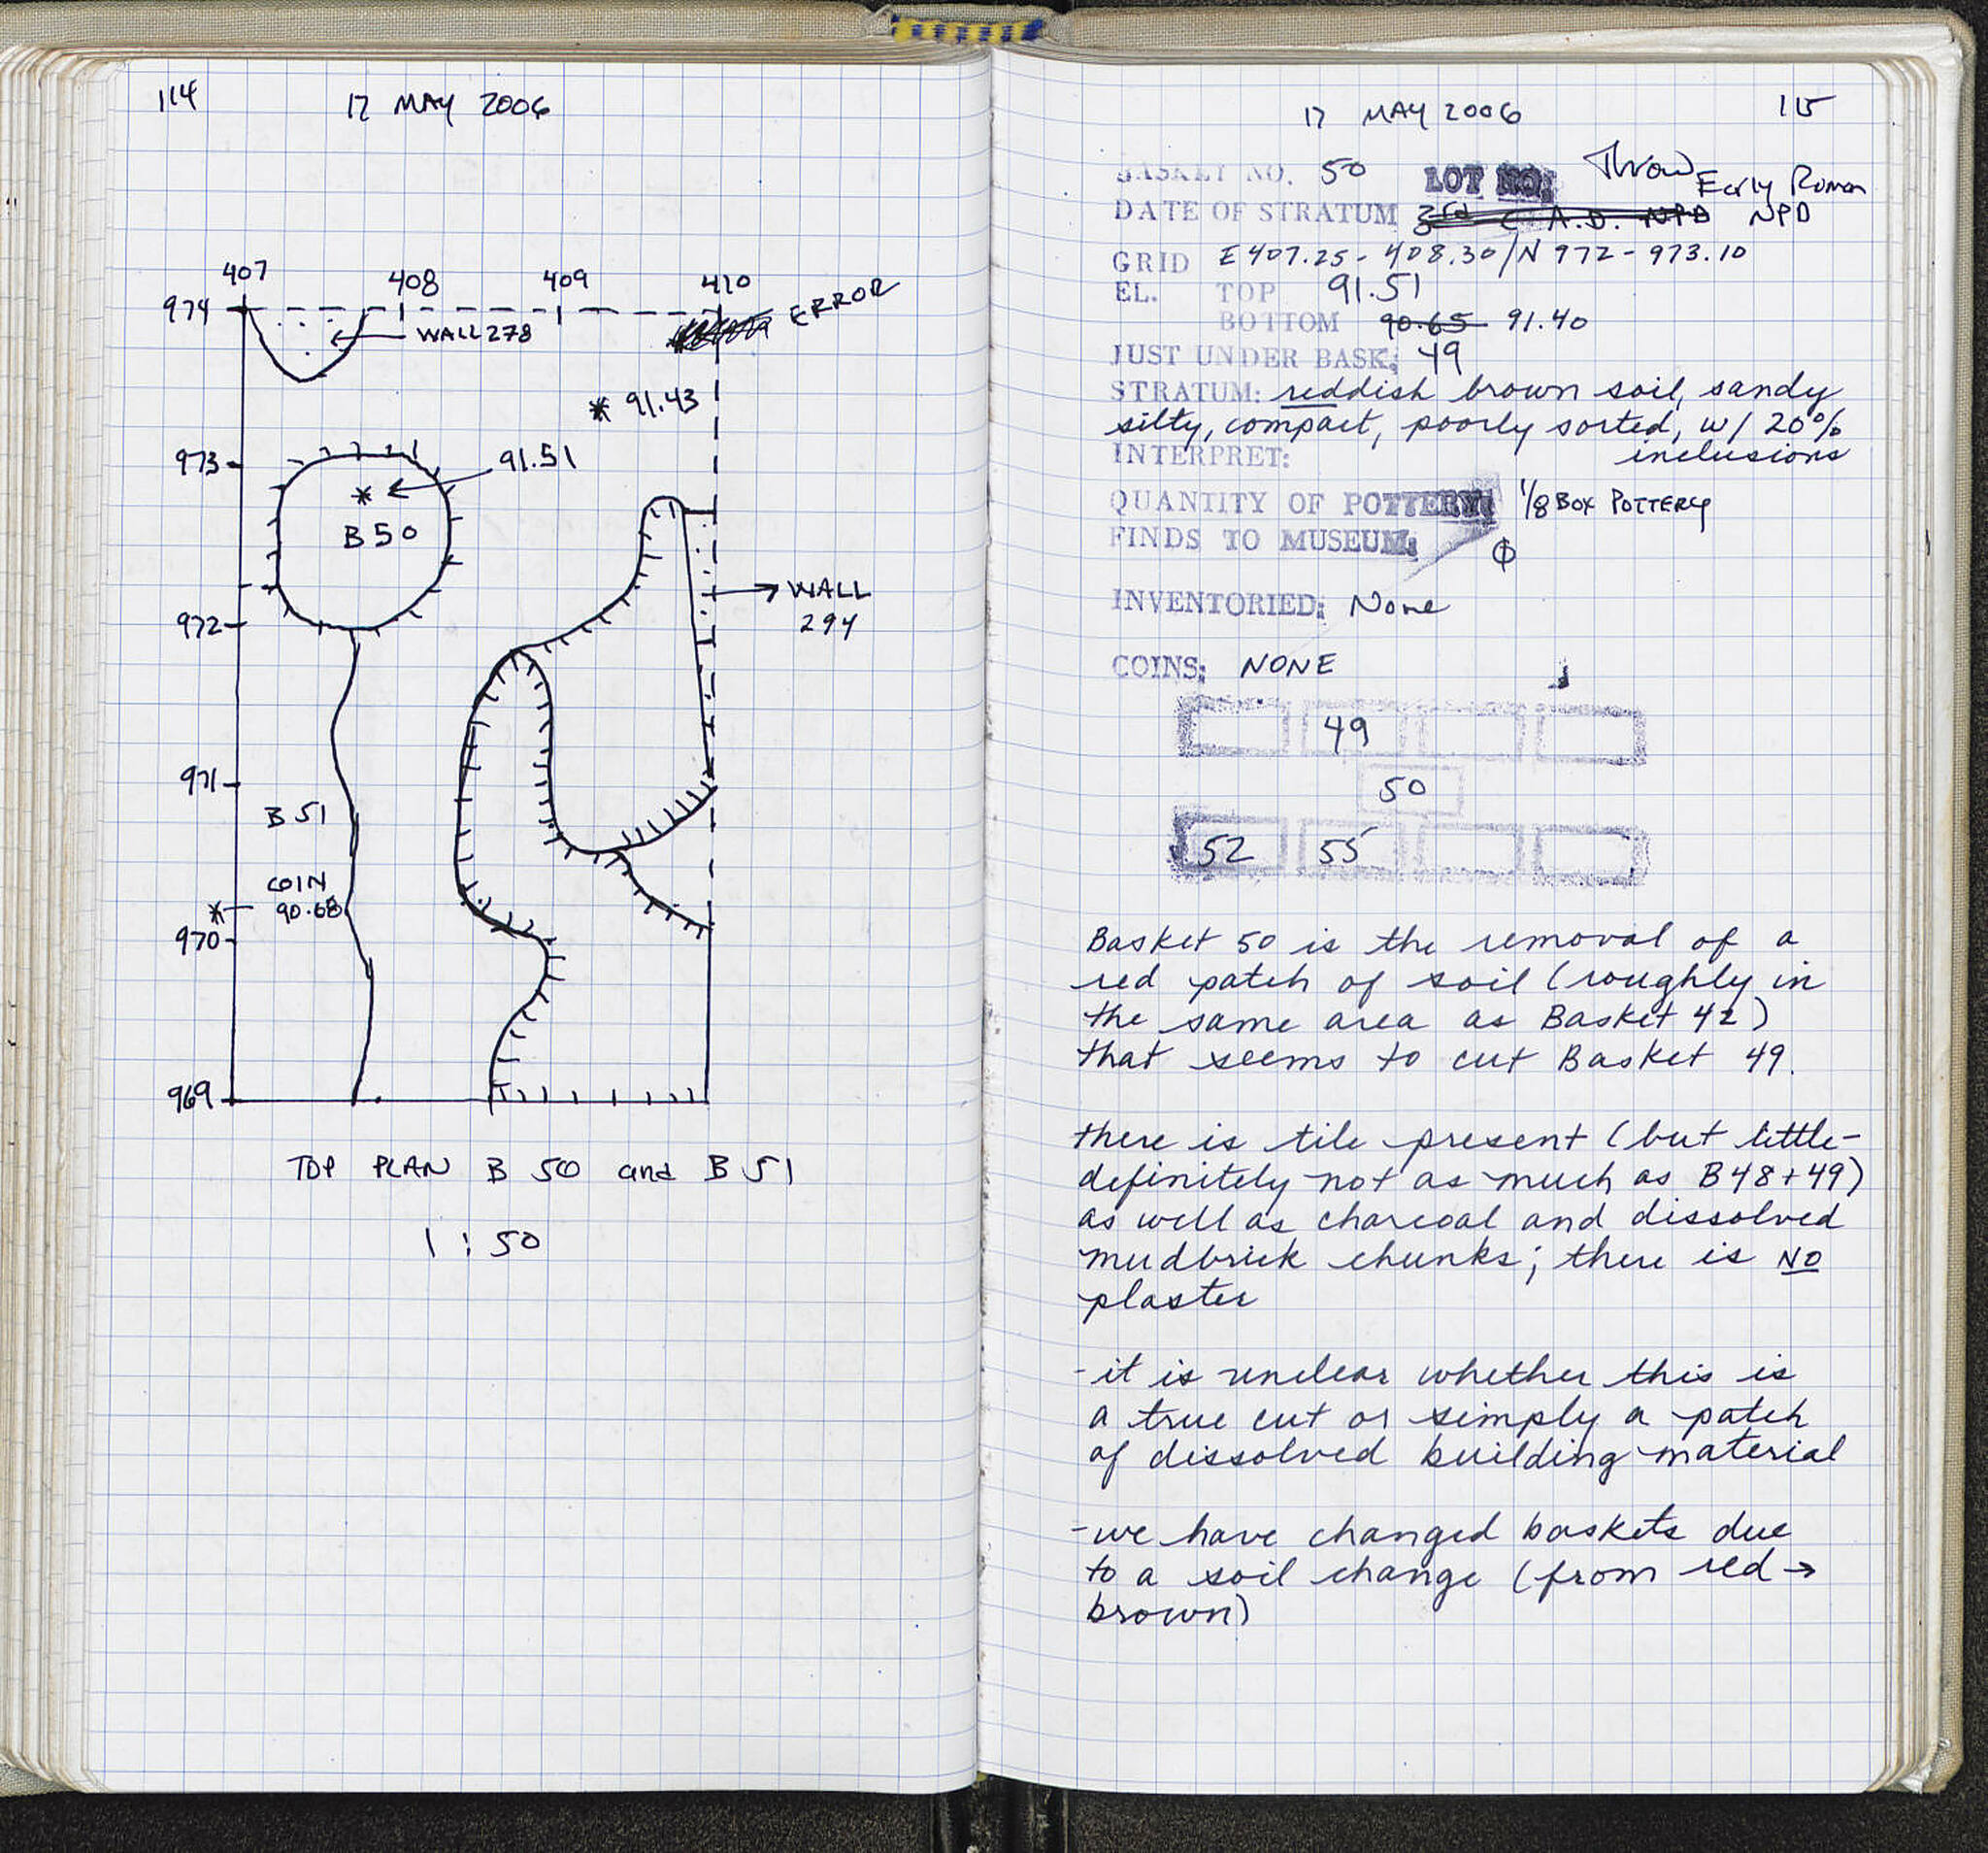 114
17 MAY 2006
407 408 409 410
974
ERROR
WALL 278
* 91.43
973
91.51
*
B 50
WALL
294
972
971
B 51
COIN
* 90.68
970
969
TOP PLAN B 50 and B 51
1 : 50
17 MAY 2006
115
BASKET NO. 50 LOT NO: Throw
Early Roman
DATE OF STRATUM 3rd C A.D. NPD NPD
GRID E 407.25 - 408.30/N 972 - 973.10
EL. TOP 91.51
BOTTOM 90.65 91.40
JUST UNDER BASK: 49
STRATUM: reddish brown soil, sandy
silty, compact, poorly sorted, w/ 20%
inclusions
INTERPRET:
QUANTITY OF POTTERY: 1/8 BOX POTTERY
FINDS TO MUSEUM: φ
INVENTORIED: None
COINS: NONE
49
50
52 55
Basket 50 is the removal of a
red patch of soil (roughly in
the same area as Basket 42)
that seems to cut Basket 49.
there is tile present (but little-
definitely not as much as B48+49)
as well as charcoal and dissolved
mudbrick chunks; there is NO
plaster
- it is unclear whether this is
a true cut or simply a patch
of dissolved building material
- we have changed baskets due
to a soil change (from red →
brown)